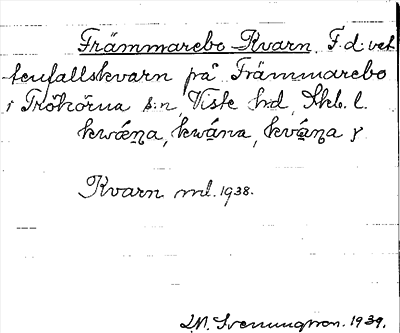 Främmarebo Kvarn. F. d. vat
tenfallskvarn på Främmarebo
i Trökörna s:n, Viste hd, Skb. l.
kwæ̣na, kwạ́na, kvạ́na f
Kvarn ml. 1938.
D.N. Svenungsson. 1939.